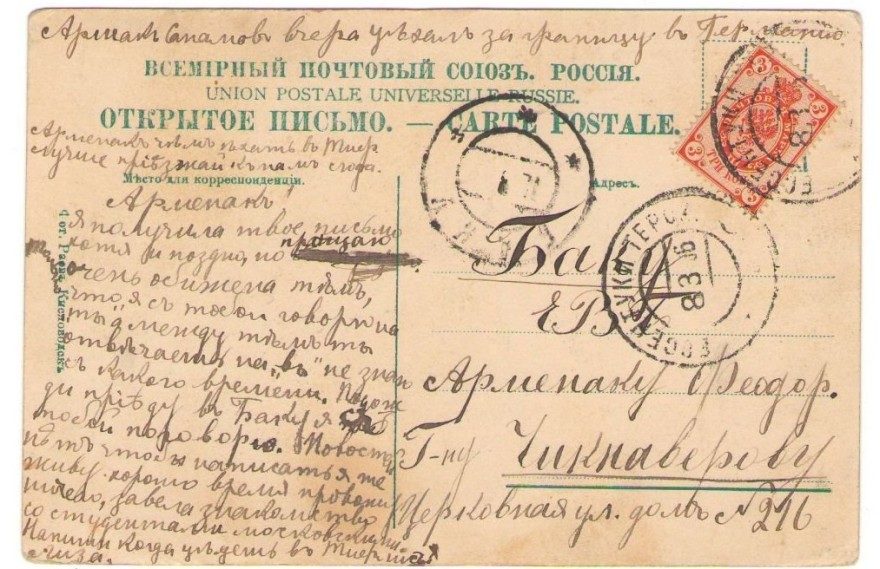 Армакъ Спамовъ вчера уѣхалъ за границу въ Германію.
ВСЕМІРНЫЙ ПОЧТОВЫЙ СОЮЗЪ. РОССІЯ.
UNION POSTALE UNIVERSELLE RUSSIE.
ОТКРЫТОЕ ПИСЬМО. — CARTE POSTALE.
Арменакъ чѣмъ ѣхать въ
лучше пріѣзжай къ намъ сюда.
Мѣсто для корреспонденціи.
Адресъ.
Арменакъ!
я получила твое письмо
хотя и поздно, но прощаю
очень обижена тѣмъ,
что я съ тобой говорю на
"ты" а между тѣмъ ты
отвѣчаешь на "въ" не знаю
съ какого времени. Подож
ди пріѣду въ Баку я съ
тобой поговорю. Новостей
нѣтъ чтобы написать я
живу хорошо время провожу
ничего, завела знакомство
со студентами московскими
Напиши когда уѣдешь въ
Лиза.
Фот. Раевъ Кисловодскъ
Баку
ЕВ
Арменаку Феодор.
Г-ну Чикнаверову
Церковная ул. домъ № 216
ЕССЕНТУКИ ТЕРСК.
8 3 06
ЕССЕНТУКИ
3
3
3
3